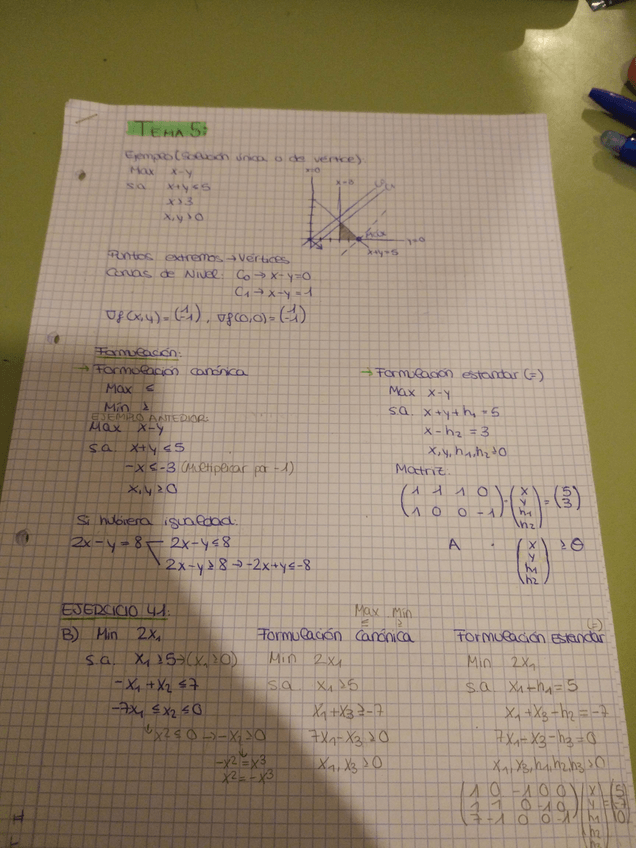 TEMA 5:
Ejemplo (Solución única o de vértice)
Max x-y
s.a. x+y≤5
x≥3
x,y≥0
x=0
x=3
C₀ C₁
Max
y=0
x+y=5
Puntos extremos → Vértices
Curvas de Nivel: C₀ → x-y=0
C₁ → x-y=1
∇f(x,y) = (1 -1), ∇f(0,0) = (1 -1)
Formulación:
→ Formulación canónica
Max ≤
Min ≥
EJEMPLO ANTERIOR:
Max x-y
s.a. x+y≤5
-x≤-3 (Multiplicar por -1)
x,y≥0
Si hubiera igualdad:
2x-y=8
2x-y≤8
2x-y≥8 → -2x+y≤-8
→ Formulación estandar (=)
Max x-y
s.a. x+y+h₁=5
x-h₂=3
x,y,h₁,h₂≥0
Matriz:
(1 1 1 0
1 0 0 -1) · (x y h₁ h₂) = (5 3)
A · (x y h₁ h₂) ≥ θ
EJERCICIO 4.1:
B) Min 2x₁
s.a. x₁≥5 → (x₁≥0)
-x₁+x₂≤7
-7x₁≤x₂≤0
↓x²≤0 → -x₂≥0
-x²=x³
x²=-x³
Max Min
≤ ≥
Formulación Canónica
Min 2x₁
s.a x₁≥5
x₁+x₃≥-7
7x₁-x₃≥0
x₁,x₃≥0
(=)
Formulación Estandar
Min 2x₁
s.a x₁-h₁=5
x₁+x₃-h₂=-7
7x₁-x₃-h₃=0
x₁,x₃,h₁,h₂,h₃≥0
(1 0 -1 0 0
1 1 0 -1 0
7 -1 0 0 -1) (x y h₁ h₂ = (5 -7 0)